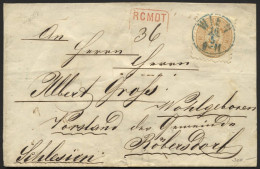 RCMDT
WIEN
An
36
Herrn
Herrn
Albert Groß
Wohlgeboren
Vorstand der Gemeinde
Röbersdorf
Schlesien